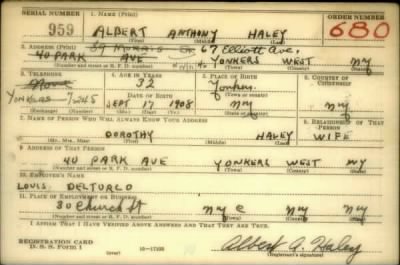 SERIAL NUMBER 1. NAME (Print) ORDER NUMBER
959 ALBERT ANTHONY HALEY 680
(First) (Middle) (Last)
2. ADDRESS (Print) 89 MORRIS 67 Elliott Ave,
40 PARK AVE YONKERS WEST NY
(Number and street or R. F. D. number) (Town) (County) (State)
3. TELEPHONE 4. AGE IN YEARS 5. PLACE OF BIRTH 6. COUNTRY OF CITIZENSHIP
None 32 Yonkers
YONKERS 7245 DATE OF BIRTH (Town or county)
SEPT 17 1908 NY NY
(Exchange) (Number) (Mo.) (Day) (Yr.) (State or country)
7. NAME OF PERSON WHO WILL ALWAYS KNOW YOUR ADDRESS 8. RELATIONSHIP OF THAT PERSON
DOROTHY HALEY WIFE
(Mr., Mrs., Miss) (First) (Middle) (Last)
9. ADDRESS OF THAT PERSON
40 PARK AVE YONKERS WEST NY
(Number and street or R. F. D. number) (Town) (County) (State)
10. EMPLOYER'S NAME
LOUIS DELTURCO
11. PLACE OF EMPLOYMENT OR BUSINESS
30 Church St NYC NY
(Number and street or R. F. D. number) (Town) (County) (State)
I AFFIRM THAT I HAVE VERIFIED ABOVE ANSWERS AND THAT THEY ARE TRUE.
REGISTRATION CARD
D. S. S. Form 1 16-17105 Albert A. Haley
(Registrant's signature)